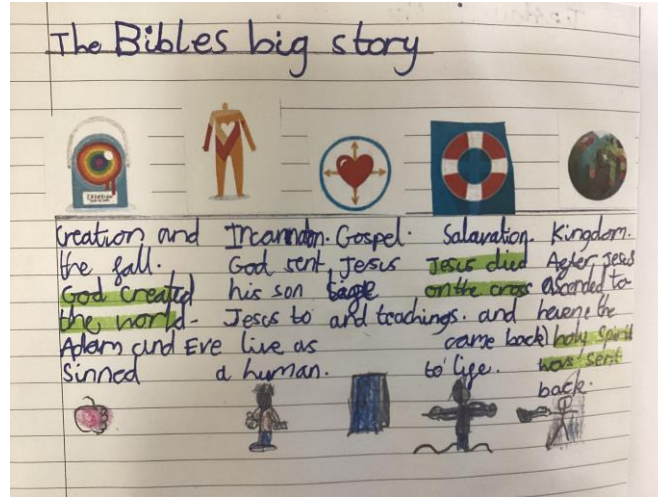 The Bibles big story
Creation
Creation and
the fall.
God created
the world-
Adam and Eve
Sinned
Incarnation.
God sent
his son
Jesus to
live as
a human.
Gospel.
Jesus
and teachings.
Salavation.
Jesus died
on the cross
and
came back
to life.
Kingdom.
After Jesus
ascended to
hevene the
holy spirit
was sent
back.